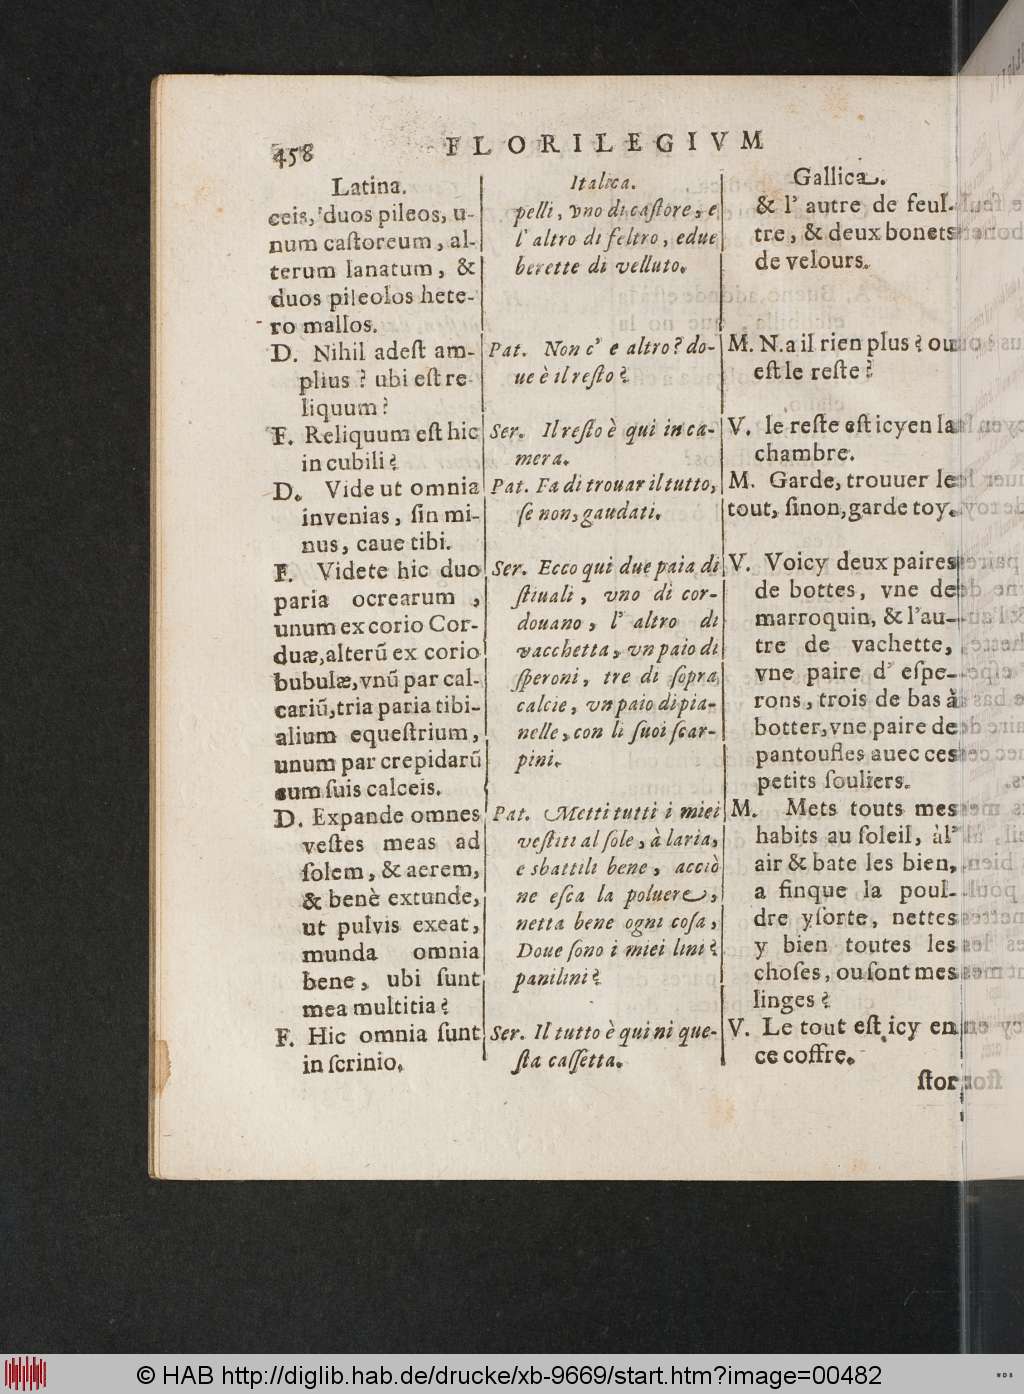 458
FLORILEGIVM
Latina.
ceis, duos pileos, u-
num caſtoreum, al-
terum lanatum, &
duos pileolos hete-
ro mallos.
D. Nihil adeſt am-
plius? ubi eſt re-
liquum?
F. Reliquum eſt hic
in cubili?
D. Vide ut omnia
invenias, ſin mi-
nus, cave tibi.
F. Videte hic duo
paria ocrearum,
unum ex corio Cor-
duæ, alterũ ex corio
bubulæ, vnũ par cal-
cariũ, tria paria tibi-
alium equeſtrium,
unum par crepidarũ
cum ſuis calceis.
D. Expande omnes
veſtes meas ad
ſolem, & aerem,
& benè extunde,
ut pulvis exeat,
munda omnia
bene, ubi ſunt
mea multitia?
F. Hic omnia ſunt
in ſcrinio.
Italica.
pelli, vno di caſtore, e
l' altro di feltro, e due
berette di velluto.
Pat. Non c' e altro? do-
ue è il reſto?
Ser. Il reſto è qui in ca-
mera.
Pat. Fa di trouar il tutto,
ſe non, gaudati.
Ser. Ecco qui due paia di
ſtiuali, vno di cor-
douano, l' altro di
vacchetta, vn paio di
ſperoni, tre di ſopra
calcie, vn paio di pia-
nelle, con li ſuoi ſcar-
pini.
Pat. Metti tutti i miei
veſtiti al ſole, à laria,
e sbattili bene, acciò
ne eſca la poluere,
netta bene ogni coſa,
Doue ſono i miei lini?
panilini?
Ser. Il tutto è qui ni que-
ſta caſſetta.
Gallica.
& l' autre de feul-
tre, & deux bonets
de velours.
M. N.a il rien plus? ou
eſt le reſte?
V. le reſte eſt icy en la
chambre.
M. Garde, trouuer le
tout, ſinon, garde toy.
V. Voicy deux paires
de bottes, vne de
marroquin, & l'au-
tre de vachette,
vne paire d' eſpe-
rons, trois de bas à
botter, vne paire de
pantoufles auec ces
petits ſouliers.
M. Mets touts mes
habits au ſoleil, àl'
air & bate les bien,
a finque la poul-
dre yſorte, nettes
y bien toutes les
choſes, ou ſont mes
linges?
V. Le tout eſt icy en
ce coffre.
ſtor
© HAB http://diglib.hab.de/drucke/xb-9669/start.htm?image=00482